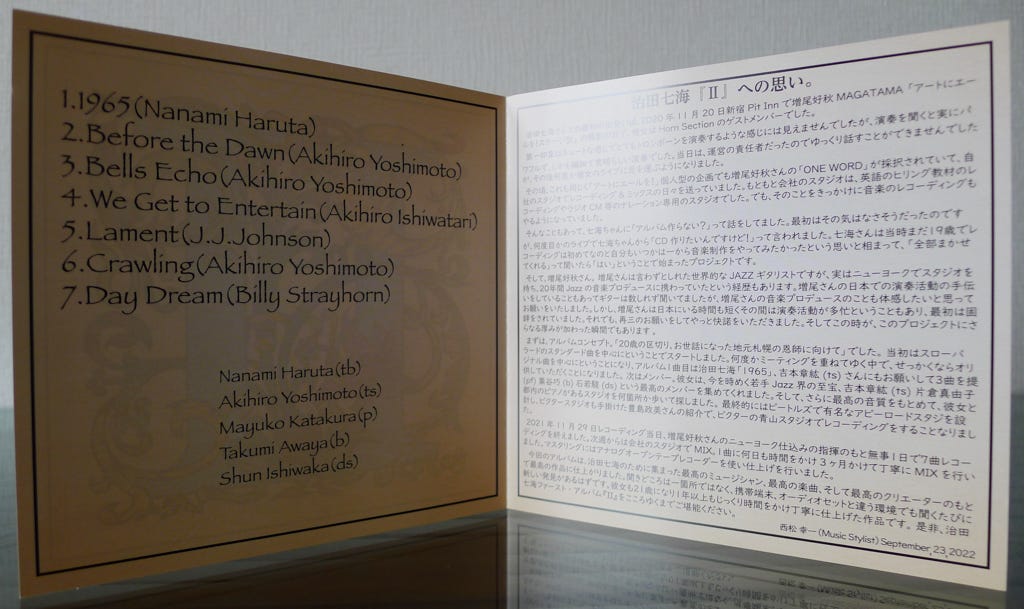 1.1965(Nanami Haruta)
2.Before the Dawn(Akihiro Yoshimoto)
3.Bells Echo(Akihiro Yoshimoto)
4.We Get to Entertain(Akihiro Ishiwatari)
5.Lament(J.J.Johnson)
6.Crawling(Akihiro Yoshimoto)
7.Day Dream(Billy Strayhorn)
Nanami Haruta(tb)
Akihiro Yoshimoto(ts)
Mayuko Katakura(p)
Takumi Awaya(b)
Shun Ishiwaka(ds)
治田七海『II』への思い。
2020年11月20日新宿 Pit Inn で増尾好秋 MAGATAMA 「アートにエー
Horn Section のゲストメンバーでした。
トロンボーンを演奏するような感じには見えませんでしたが、演奏を聞くと実にパ
当日は、運営の責任者だったのでゆっくり話すことができませんでした
個人型の企画でも増尾好秋さんの「ONE WORD」が採択されていて、自
社のスタジオでレコーディング & ミックスの日々を送っていました。もともと会社のスタジオは、英語のヒリング教材のレ
コーディングやラジオ CM 等のナレーション専用のスタジオでした。でも、そのことをきっかけに音楽のレコーディングも
やるようになっていました。
そんなこともあって、七海ちゃんに「アルバム作らない?」って話をしてました。最初はその気はなさそうだったのです
が、何度目かのライブで七海ちゃんから「CD 作りたいんですけど!」って言われました。七海さんは当時まだ19歳でレ
コーディングは初めてなのと自分もいつかは一から音楽制作をやってみたかったという思いと相まって、「全部まかせ
てくれる」って聞いたら「はい」ということで始まったプロジェクトです。
そして、増尾好秋さん。増尾さんは言わずとしれた世界的な JAZZ ギタリストですが、実はニューヨークでスタジオを
持ち、20年間 Jazz の音楽プロデュースに携わっていたという経歴もあります。増尾さんの日本での演奏活動の手伝
いをしていることもあってギターは数しれず聞いてましたが、増尾さんの音楽プロデュースのことも体感したいと思って
お願いをいたしました。しかし、増尾さんは日本にいる時間も短くその間は演奏活動が多忙ということもあり、最初は固
辞をされていました。それでも、再三のお願いをしてやっと快諾をいただきました。そしてこの時が、このプロジェクトにさ
らなる厚みが加わった瞬間でもあります。
まずは、アルバムコンセプト。「20歳の区切り、お世話になった地元札幌の恩師に向けて」でした。当初はスローバ
ラードのスタンダード曲を中心にということでスタートしました。何度かミーティングを重ねてゆく中で、せっかくならオリ
ジナル曲を中心にということになり、アルバム1曲目は治田七海「1965」、吉本章紘 (ts) さんにもお願いして3曲を提
供していただくことになりました。次はメンバー。彼女は、今を時めく若手 Jazz 界の至宝、吉本章紘 (ts) 片倉真由子
(pf) 粟谷巧 (b) 石若駿 (ds) という最高のメンバーを集めてくれました。そして、さらに最高の音質をもとめて、彼女と
都内のピアノがあるスタジオを何箇所か歩いて探しました。最終的にはビートルズで有名なアビーロードスタジオを設
計し、ビクタースタジオも手掛けた豊島政実さんの紹介で、ビクターの青山スタジオでレコーディングをすることなりまし
た。
2021年11月29日レコーディング当日、増尾好秋さんのニューヨーク仕込みの指揮のもと無事1日で7曲レコー
ディングを終えました。次週からは会社のスタジオで MIX。1曲に何日も時間をかけ3ヶ月かけて丁寧に MIX を行い
ました。マスタリングにはアナログオープンテープレコーダーを使い仕上げを行いました。
今回のアルバムは、治田七海のために集まった最高のミュージシャン、最高の楽曲、そして最高のクリエーターのもと
で最高の作品に仕上がりました。聞きどころは一箇所ではなく、携帯端末、オーディオセットと違う環境でも聞くたびに
新しい発見があるはずです。彼女も21歳になり1年以上もじっくり時間をかけ丁寧に仕上げた作品です。是非、治田
七海ファースト・アルバム『II』をこころゆくまでご堪能ください。
西松 幸一(Music Stylist) September,23,2022